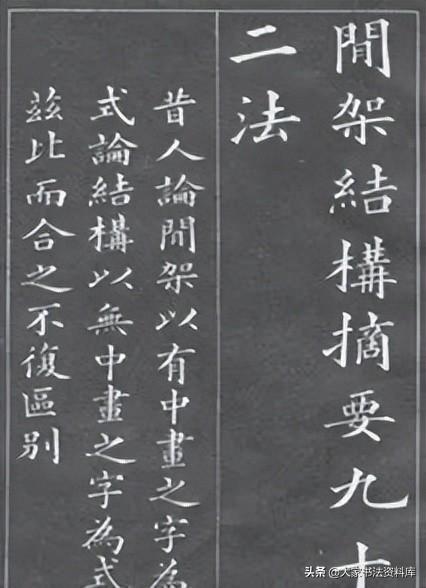 閒架結構摘要九十
二法
昔人論閒架以有中畫之字為
式論結構以無中畫之字為式
茲比而合之不復區别
头条 @大家书法资料库